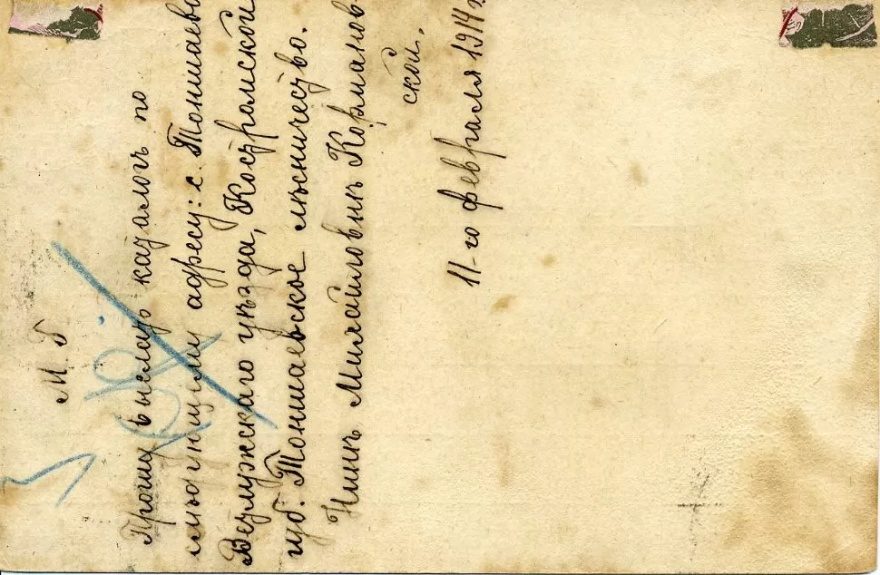 М. Г.
Прошу выслать каталогъ по
слѣдующему адресу: с. Тоншаево
Ветлужскаго уѣзда, Костромской
губ. Тоншаевское лѣсничество.
Нинѣ Михайловнѣ Корманов
ской.
11-го февраля 1914 г